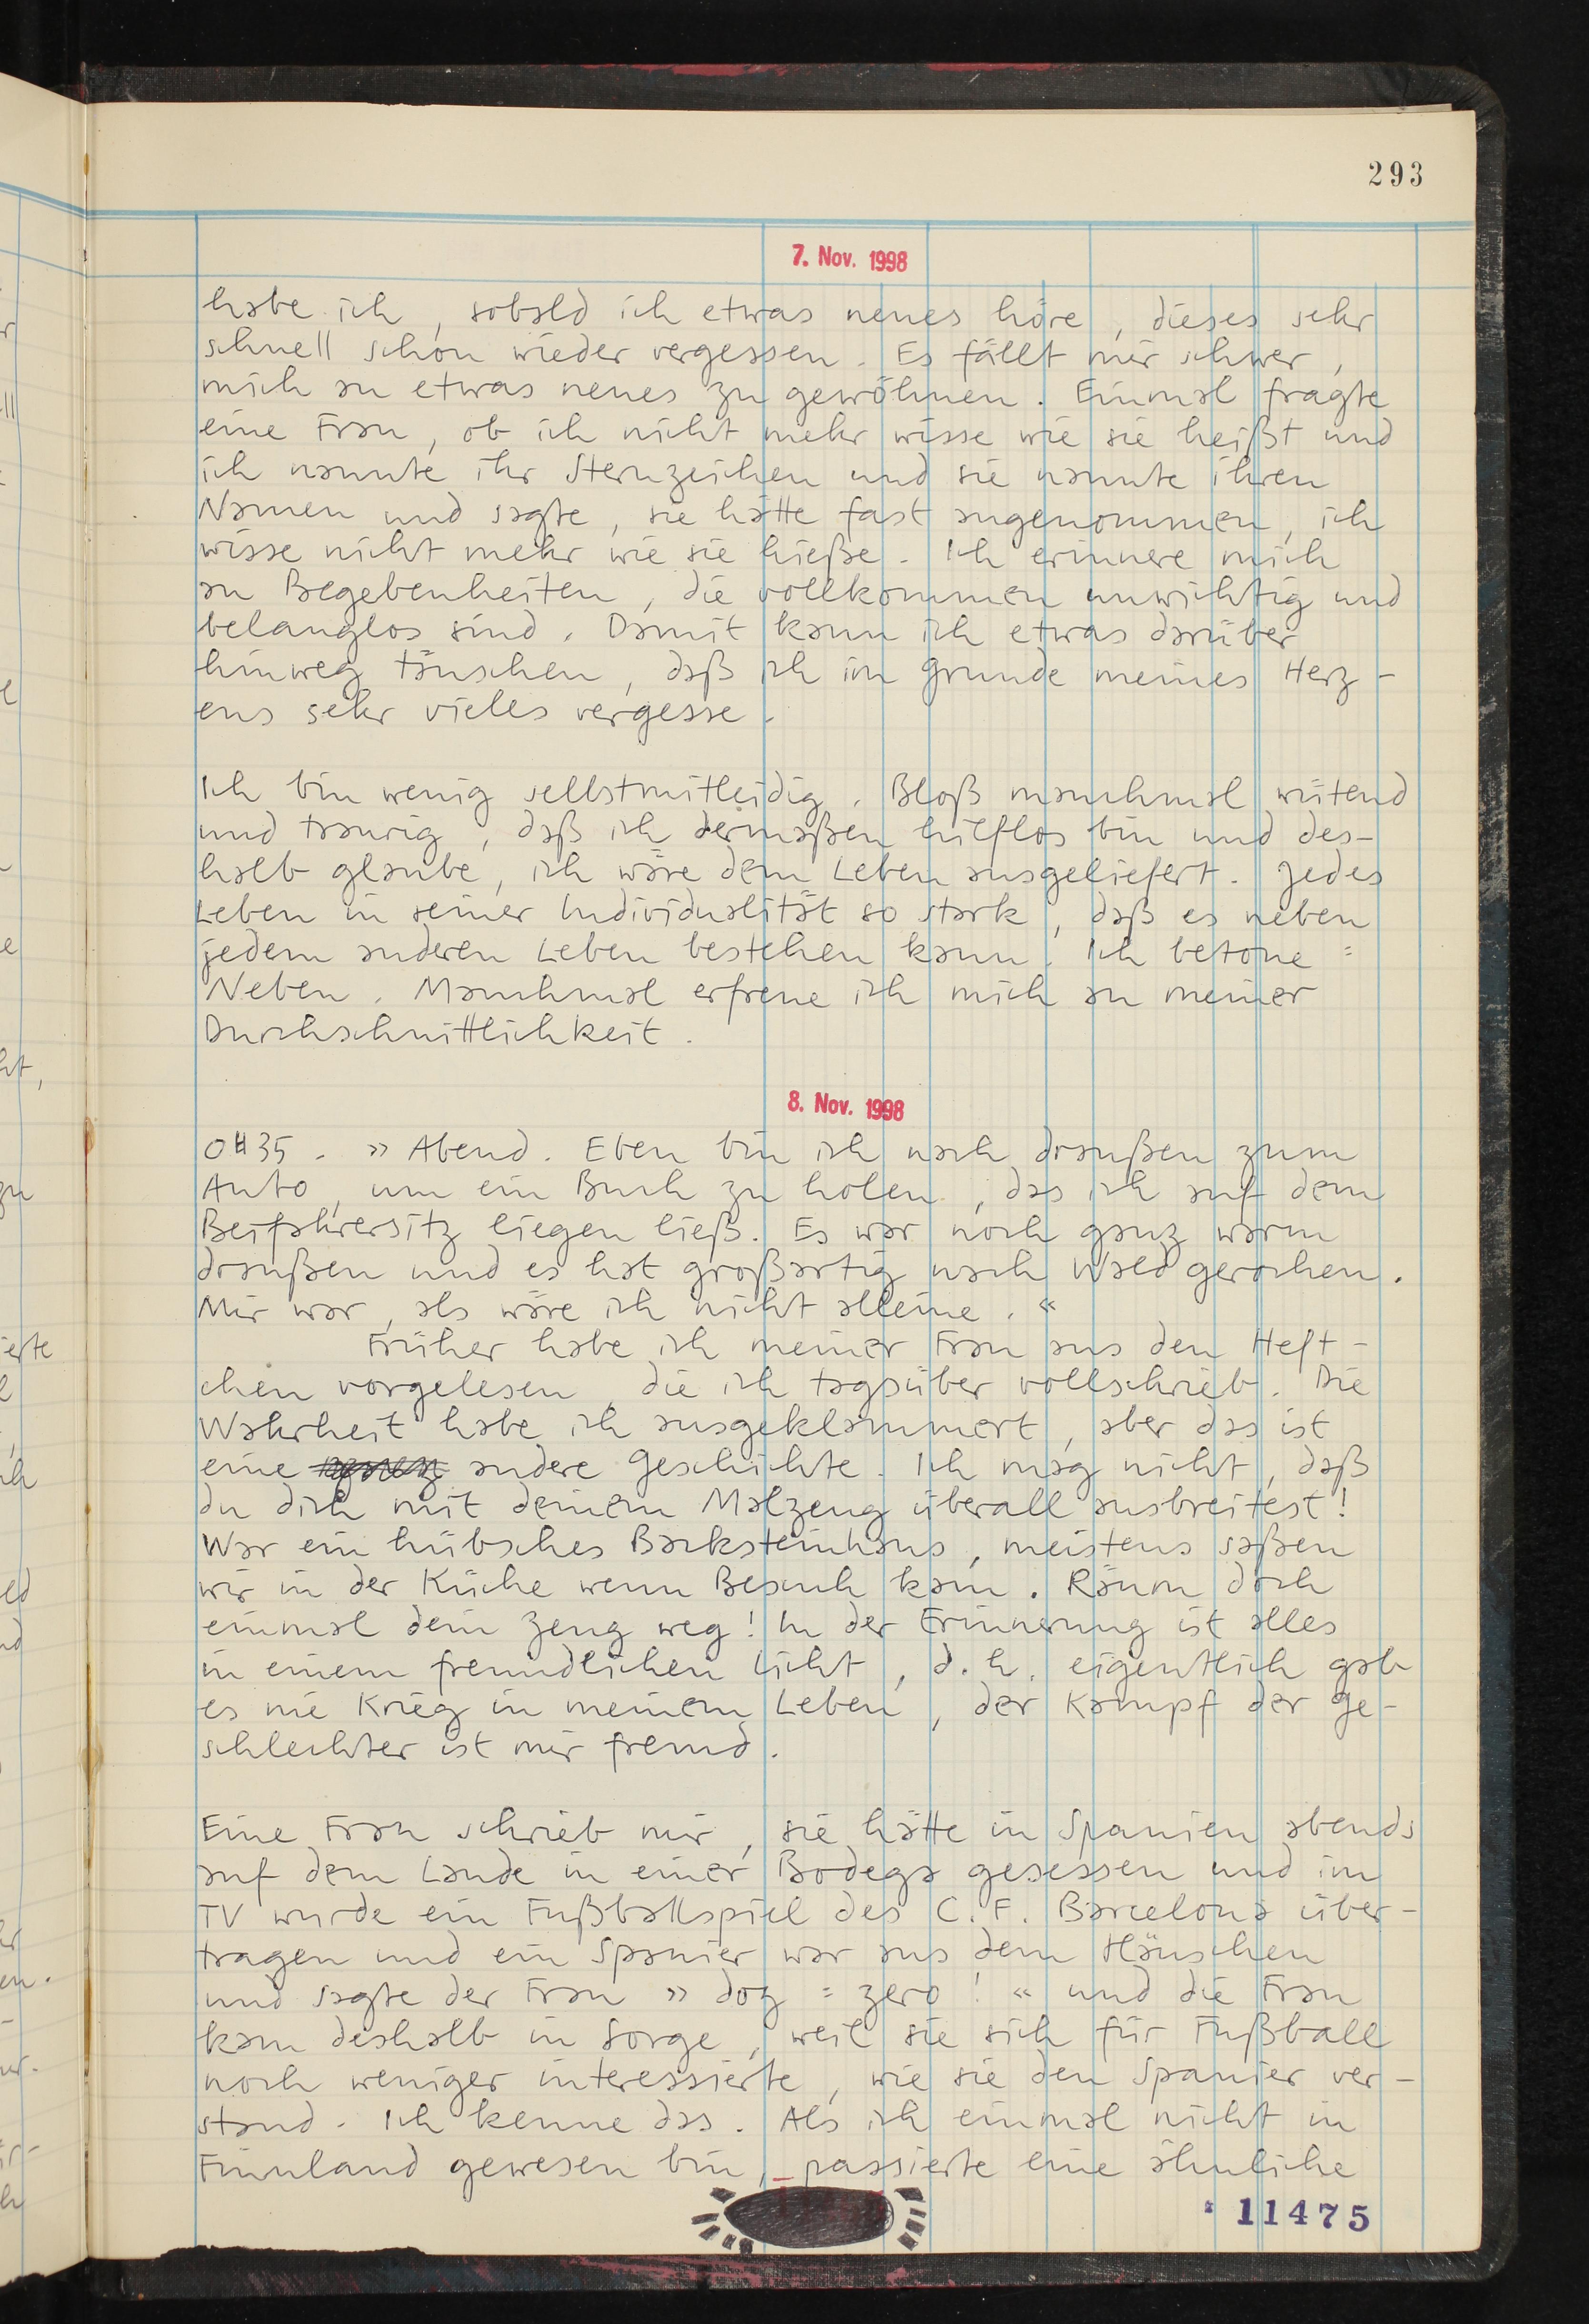 293
7. Nov. 1998
habe ich, sobald ich etwas neues höre, dieses sehr
schnell schon wieder vergessen. Es fällt mir schwer,
mich an etwas neues zu gewöhnen. Einmal fragte
eine Frau, ob ich nicht mehr wisse wie sie heißt und
ich nannte ihr Sternzeichen und sie nannte ihren
Namen und sagte, sie hätte fast angenommen, ich
wisse nicht mehr wie sie hieße. Ich erinnere mich
an Begebenheiten, die vollkommen unwichtig und
belanglos sind. Damit kann ich etwas darüber
hinweg täuschen, daß ich im Grunde meines Herz-
ens sehr vieles vergesse.
Ich bin wenig selbstmitleidig. Bloß manchmal wütend
und traurig, daß ich dermaßen hilflos bin und des-
halb glaube, ich wäre dem Leben ausgeliefert. Jedes
Leben in seiner Individualität so stark, daß es neben
jedem anderen Leben bestehen kann. Ich betone =
Neben. Manchmal erfreue ich mich an meiner
Durchschnittlichkeit.
8. Nov. 1998
0H35. » Abend. Eben bin ich nach draußen zum
Auto, um ein Buch zu holen, das ich auf dem
Beifahrersitz liegen ließ. Es war noch ganz warm
draußen und es hat großartig nach Wald gerochen.
Mir war, als wäre ich nicht alleine. «
Früher habe ich meiner Frau aus den Heft-
chen vorgelesen, die ich tagsüber vollschrieb. Die
Wahrheit habe ich ausgeklammert, aber das ist
eine andere Geschichte. Ich mag nicht, daß
du dich mit deinem Malzeug überall ausbreitest!
War ein hübsches Backsteinhaus, meistens saßen
wir in der Küche wenn Besuch kam. Räum doch
einmal dein Zeug weg! In der Erinnerung ist alles
in einem freundlichen Licht, d.h. eigentlich gab
es nie Krieg in meinem Leben, der Kampf der Ge-
schlechter ist mir fremd.
Eine Frau schrieb mir, sie hätte in Spanien abends
auf dem Lande in einer Bodega gesessen und im
TV wurde ein Fußballspiel des C.F. Barcelona über-
tragen und ein Spanier war aus dem Häuschen
und sagte der Frau » doz = zero! « und die Frau
kam deshalb in Sorge, weil sie sich für Fußball
noch weniger interessierte, wie sie den Spanier ver-
stand. Ich kenne das. Als ich einmal nicht in
Finnland gewesen bin, passierte eine ähnliche
11475